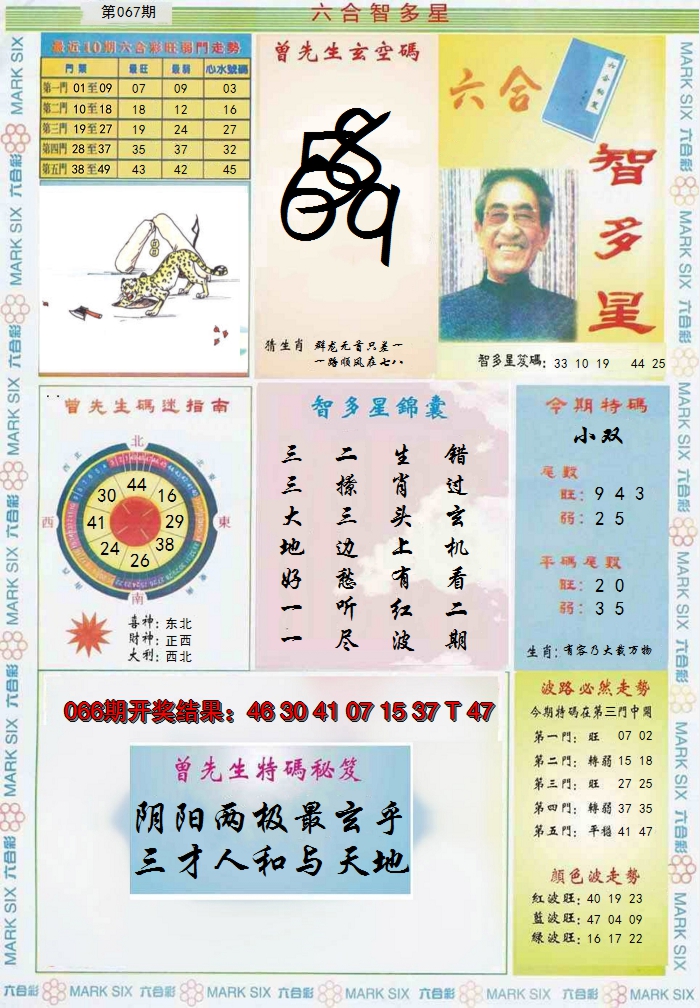 第067期
六合智多星
最近10期六合彩旺弱門走勢
門類 最旺 最弱 心水號碼
第一門 01至09 07 09 03
第二門 10至18 18 12 16
第三門 19至27 19 24 27
第四門 28至37 35 37 32
第五門 38至49 43 42 45
曾先生玄空碼
猜生肖 群龙无首只差一
一路顺风在七八
六合
智多星
智多星笈碼: 33 10 19 44 25
曾先生碼迷指南
北
西
東
南
44
30 16
41 29
24 38
26
喜神: 东北
財神: 正西
大利: 西北
智多星錦囊
错过玄机看二期
生肖头上有红波
二撩三边愁听尽
三三大地好一一
今期特碼
小双
尾數
旺: 9 4 3
弱: 2 5
平碼尾數
旺: 2 0
弱: 3 5
生肖: 有容乃大载万物
066期开奖结果: 46 30 41 07 15 37 T 47
曾先生特碼秘笈
阴阳两极最玄乎
三才人和与天地
波路必然走勢
今期特碼在第三門中開
第一門: 旺 07 02
第二門: 轉弱 15 18
第三門: 旺 27 25
第四門: 轉弱 37 35
第五門: 平穩 41 47
顏色波走勢
紅波旺: 40 19 23
藍波旺: 47 04 09
綠波旺: 16 17 22
六合彩 MARK SIX 六合彩 MARK SIX 六合彩 MARK SIX 六合彩 MARK SIX 六合彩 MARK SIX